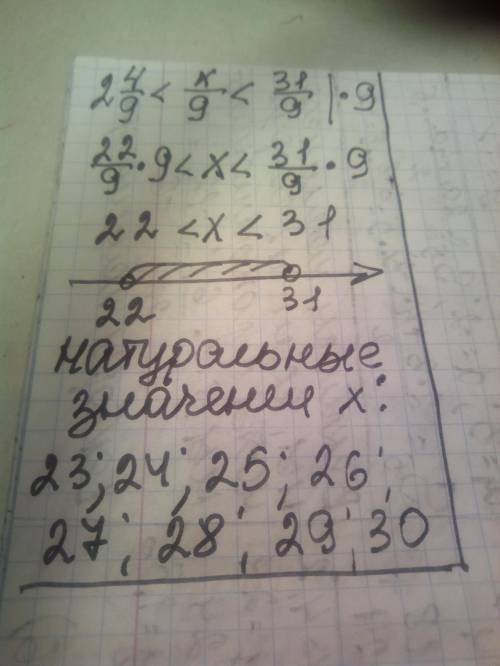 2 4/9 < x/9 < 31/9 | · 9
22/9 · 9 < x < 31/9 · 9
22 < x < 31
22 31
натуральные
значении x:
23; 24; 25; 26;
27; 28; 29; 30